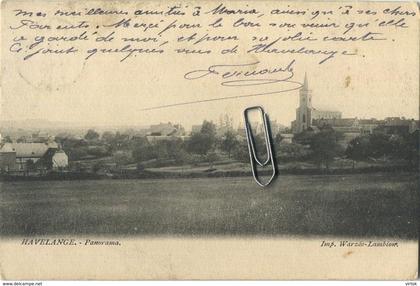 mes meilleures amitiés à Maria ainsi qu'à ses chers
Parents. Merçi pour le bon souvenir qu'elle
a gardé de moi, et pour sa jolie carte
Ci joint quelques vues de Havelange.
Fernande
HAVELANGE. - Panorama.
Imp. Warzée-Lambion.